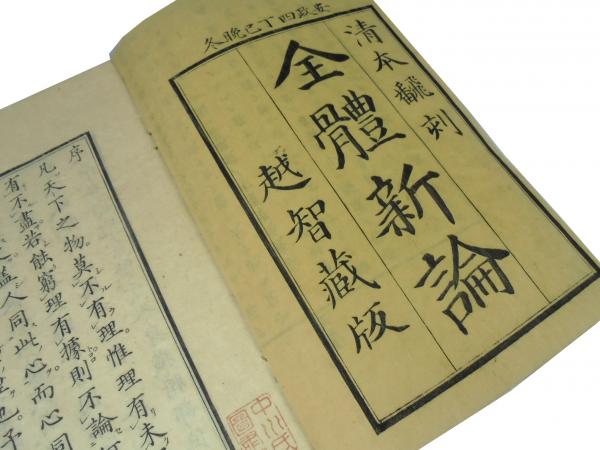 安政四丁巳晩冬
清本飜刻
全體新論
越智藏版
序
凡天下之物莫不有理惟理有未
有不盡若能窮理有據則不論
人同此心而心同
也予
中川氏
圖書